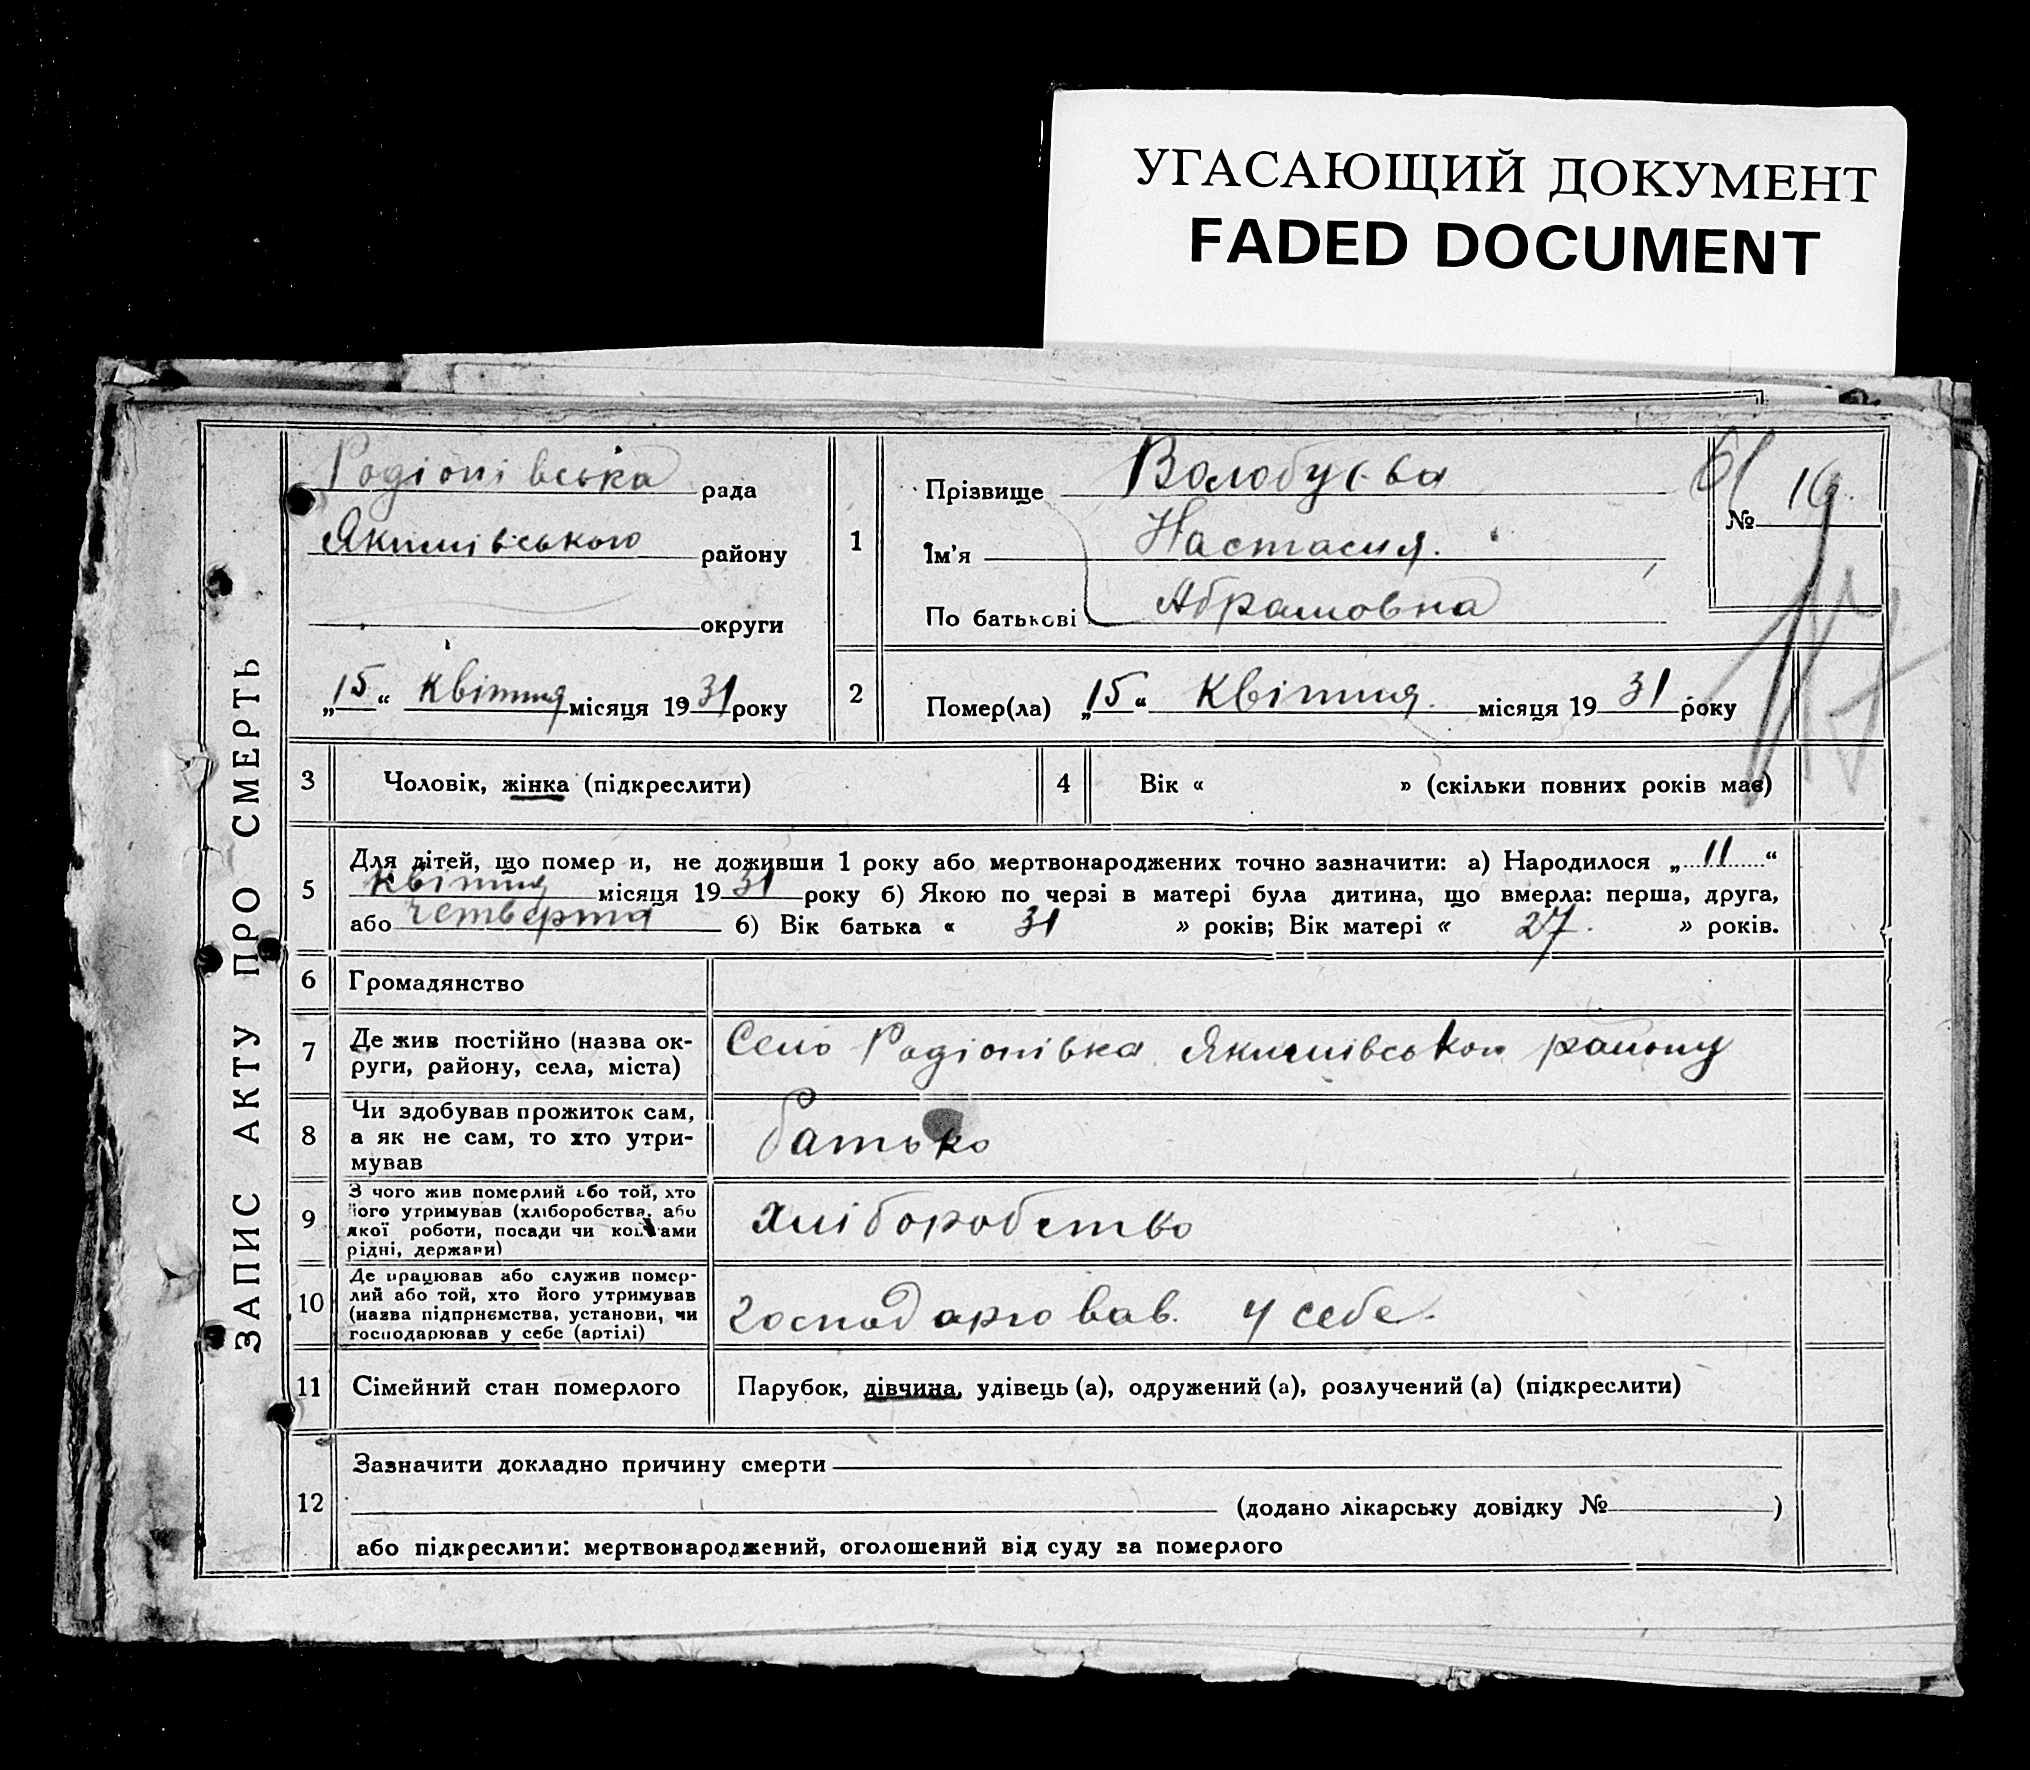 УГАСАЮЩИЙ ДОКУМЕНТ
FADED DOCUMENT
ЗАПИС АКТУ ПРО СМЕРТЬ
Родіонівська рада
Якимівського району
округи
„15“ квітня місяця 1931 року
1
Прізвище Волобуєва
Ім'я Настасия.
По батькові Абрамовна
№ 16
17
2
Помер(ла) „15“ квітня місяця 1931 року
3 Чоловік, жінка (підкреслити)
4 Вік « » (скільки повних років має)
5
Для дітей, що помер и, не доживши 1 року або мертвонароджених точно зазначити: а) Народилося „11“
квітня місяця 1931 року б) Якою по черзі в матері була дитина, що вмерла: перша, друга,
або четверта б) Вік батька « 31 » років; Вік матері « 27. » років.
6 Громадянство
7
Де жив постійно (назва ок-
руги, району, села, міста)
Село Родіонівка Якимівського району
8
Чи здобував прожиток сам,
а як не сам, то хто утри-
мував
батько
9
З чого жив померлий або той, хто
його утримував (хліборобства, або
якої роботи, посади чи коштами
рідні, держави)
хліборобство
10
Де працював або служив помер-
лий або той, хто його утримував
(назва підприємства, установи, чи
господарював у себе (артілі)
господарював. у себе.
11 Сімейний стан померлого
Парубок, дівчина, удівець (а), одружений (а), розлучений (а) (підкреслити)
12
Зазначити докладно причину смерти
(додано лікарську довідку № )
або підкреслити: мертвонароджений, оголошений від суду за померлого